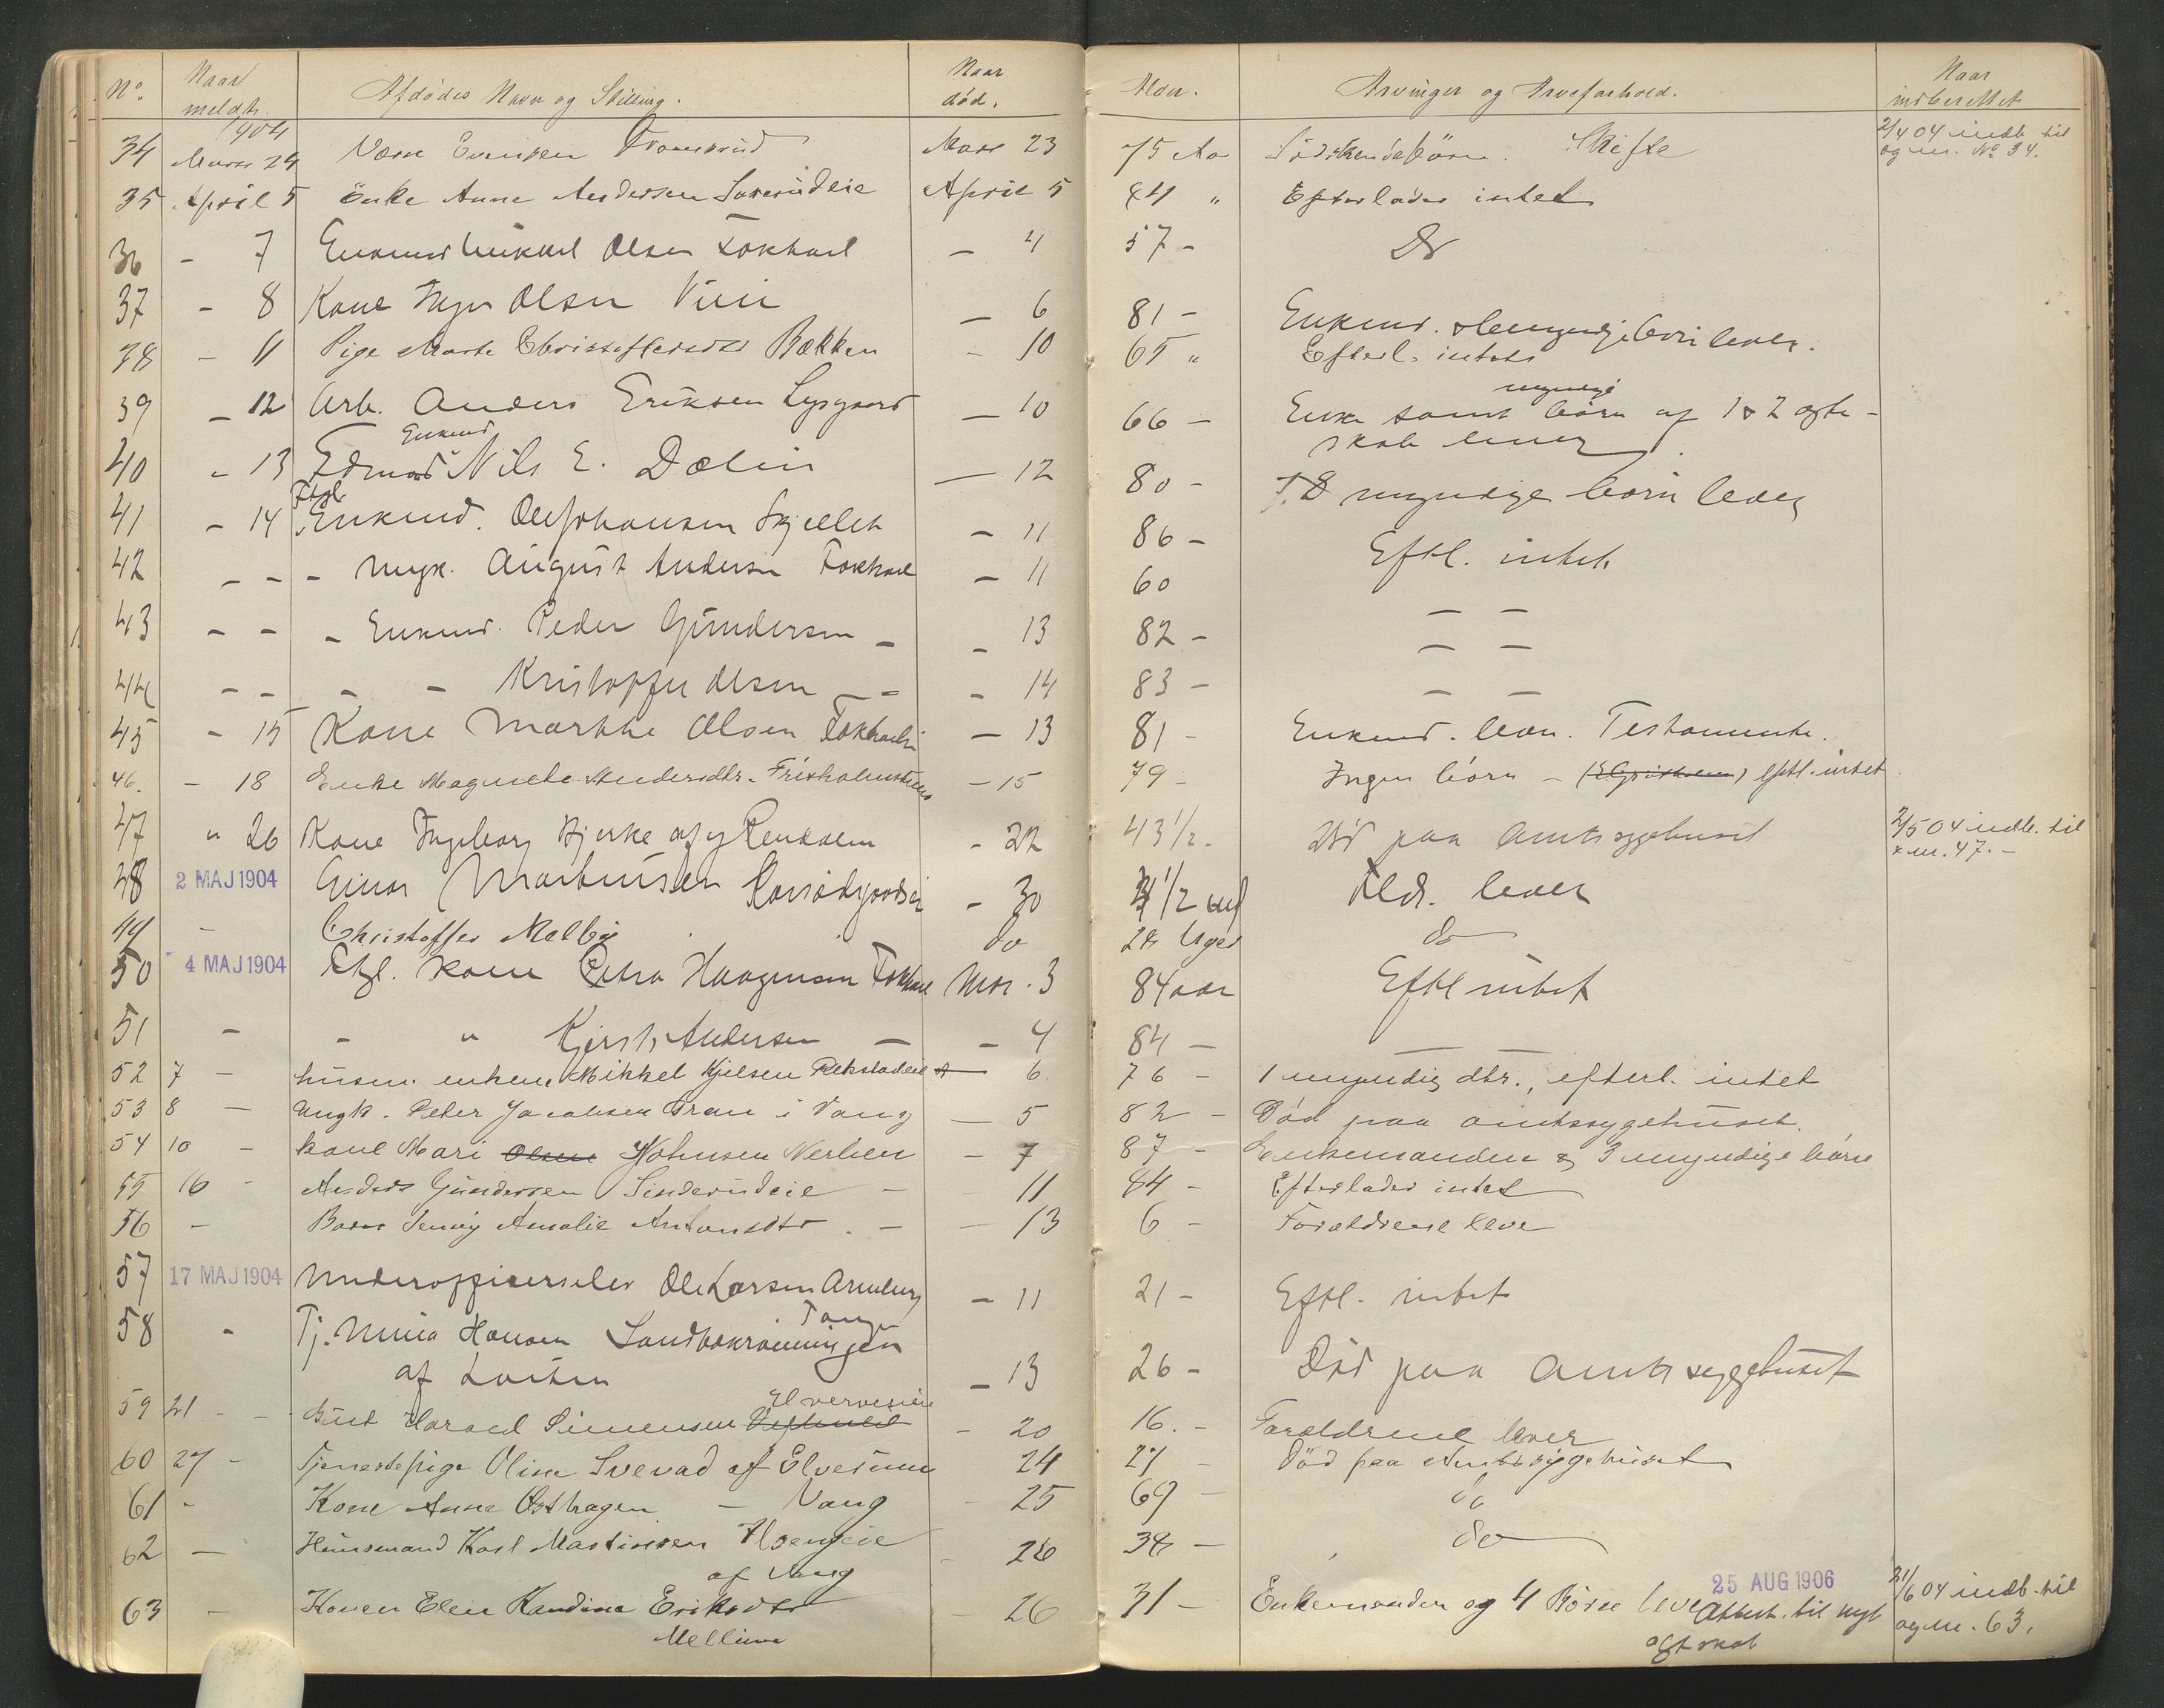 No. Naar meldt. Afdødes Navn og Stilling. Naar død. Alder. Arvinger og Arveforhold. Naar indberettet
1904
34 Mars 24 Mars 23 75 Aar Södskendebörn. Skifte 2/4 04 indb. til og m. No 34.
35 April 5 Enke Anne Andersen April 5 84 " Efterlader intet
36 - 7 Enkemd Mikkel Olsen Fokhol - 4 57 - Do
37 - 8 Kone Inger Olsen - 6 81 - Enkmd. & myndige börn lever.
38 - 11 Pige Marte Christoffersdtr Bækken - 10 65 " Efterl. intet
39 - 12 Arb. Anders Eriksen Lysgaard - 10 66 - Enke samt myndige börn af 1 & 2 ægte-
skab lever.
40 - 13 Enkmd Nils E. Dælin - 12 80 - 8 myndige börn lever
41 - 14 Ftgl. Enkmd. Ole Johansen - 11 86 - Eftl. intet.
42 - - - ungk. August Andersen Fokhol - 11 60 - -
43 - - - Enkmd. Peder Gundersen - - 13 82 - - -
44 - - - - Kristoffer Olsen - - - 14 83 - - -
45 - 15 Kone Marthe Olsen - 13 81 - Enkmd. Testamente.
46. - 18 Enke Magnete Andersdtr. - 15 79 - Ingen börn - eftl. intet
47 " 26 Kone Ingeborg Hjerke af y Rendalen - 22 43 1/2. Död paa Amtssygehuset 2/5 04 indb. til m. 47. -
48 2 MAJ 1904 Einar Martinsen - 30 1/2 Fldr. lever
49 - Christoffer Melby do Uger do
50 4 MAJ 1904 Ftgl. Kone Petra Haagensen Fokhol Mai. 3 84 aar Eftl intet
51 - - " Kjersti Andersen - - 4 84 - -
52 7 - husm. enkem. Mikkel Kjelsen Rekstadeie - 6. 76 - 1 myndig dtr., efterl. intet
53 8 - Ungk. Peter Jacobsen Gran i Vang - 5 82 - Död paa amtssygehuset.
54 10 - Kone Mari Olsen Johnsen Nerlien - 7 87 - Enkemanden og 3 myndige börn
55 16 - Anders Gundersen Sinderudeie - 11 84 - Efterlader intet
56 - Barn Jenny Amalie Antonsdtr. - - 13 6 - Forældrene leve
57 17 MAJ 1904 Underofficerselev Ole Larsen Arneberg - 11 21 - Eftl. intet
58 - Tj. Mina Hansen
af Löiten - 13 26 - Död paa Amtssygehuset
59 21 - - Gut Harald Simensen - 20 16. - Forældrene lever
60 27 - Tjenestepige Oline Svevad af Elverum 24 27 - Död paa Amtssygehuset
61 - Kone Anne Østhagen - Vang - 25 69 - do
62 - Husmand Karl Martinsen
af Vang - 26 38 - do
63 - Konen Elen Randine Eriksdtr - 26 31 - Enkemanden og 4 Börn leve 25 AUG 1906 Attest. til nyt 31/6 04 indb. til og m. 63.
Mellum ægtskab